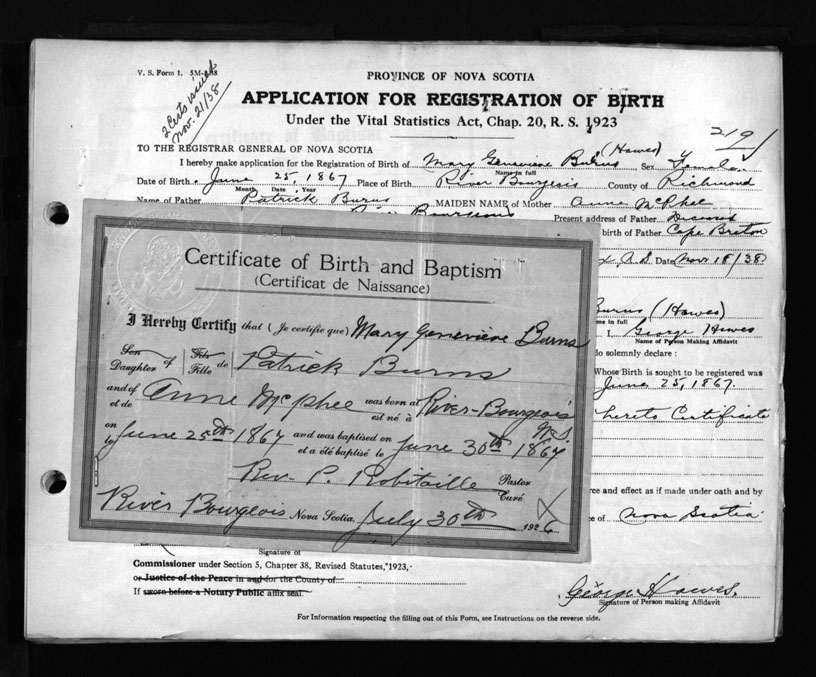 V. S. Form 1.
2 Certs issued
Nov. 21/38
PROVINCE OF NOVA SCOTIA
APPLICATION FOR REGISTRATION OF BIRTH
Under the Vital Statistics Act, Chap. 20, R. S. 1923
219
TO THE REGISTRAR GENERAL OF NOVA SCOTIA
I hereby make application for the Registration of Birth of Mary Genevieve Burns (Hawes) Sex Female
Name in full
Date of Birth June 25, 1867 Place of Birth River Bourgeois County of Richmond
Month Date Year
Name of Father Patrick Burns MAIDEN NAME of Mother Anne McPhee
River Bourgeois Present address of Father Deceased
birth of Father Cape Breton
Date Nov. 18/38
Burns (Hawes)
me in full
I, George Hawes
Name of Person Making Affidavit
do solemnly declare :
Whose Birth is sought to be registered was
June 25, 1867.
hereto Certificate
rce and effect as if made under oath and by
ce of Nova Scotia
Certificate of Birth and Baptism
(Certificat de Naissance)
I Hereby Certify that (Je certifie que) Mary Genevieve Burns
Son Fils
Daughter of Fille de Patrick Burns
and of
et de Anne McPhee was born at
est né à River-Bourgeois
N.S.
on
le June 25th 1867 and was baptised on
et a été baptisé le June 30th 1867
Rev. P. Robitaille Pastor
Curé
River Bourgeois Nova Scotia, July 30th 1926
Signature of
Commissioner under Section 5, Chapter 38, Revised Statutes, 1923,
or Justice of the Peace in and for the County of
If sworn before a Notary Public affix seal.
George Hawes.
Signature of Person making Affidavit
For Information respecting the filling out of this Form, see Instructions on the reverse side.